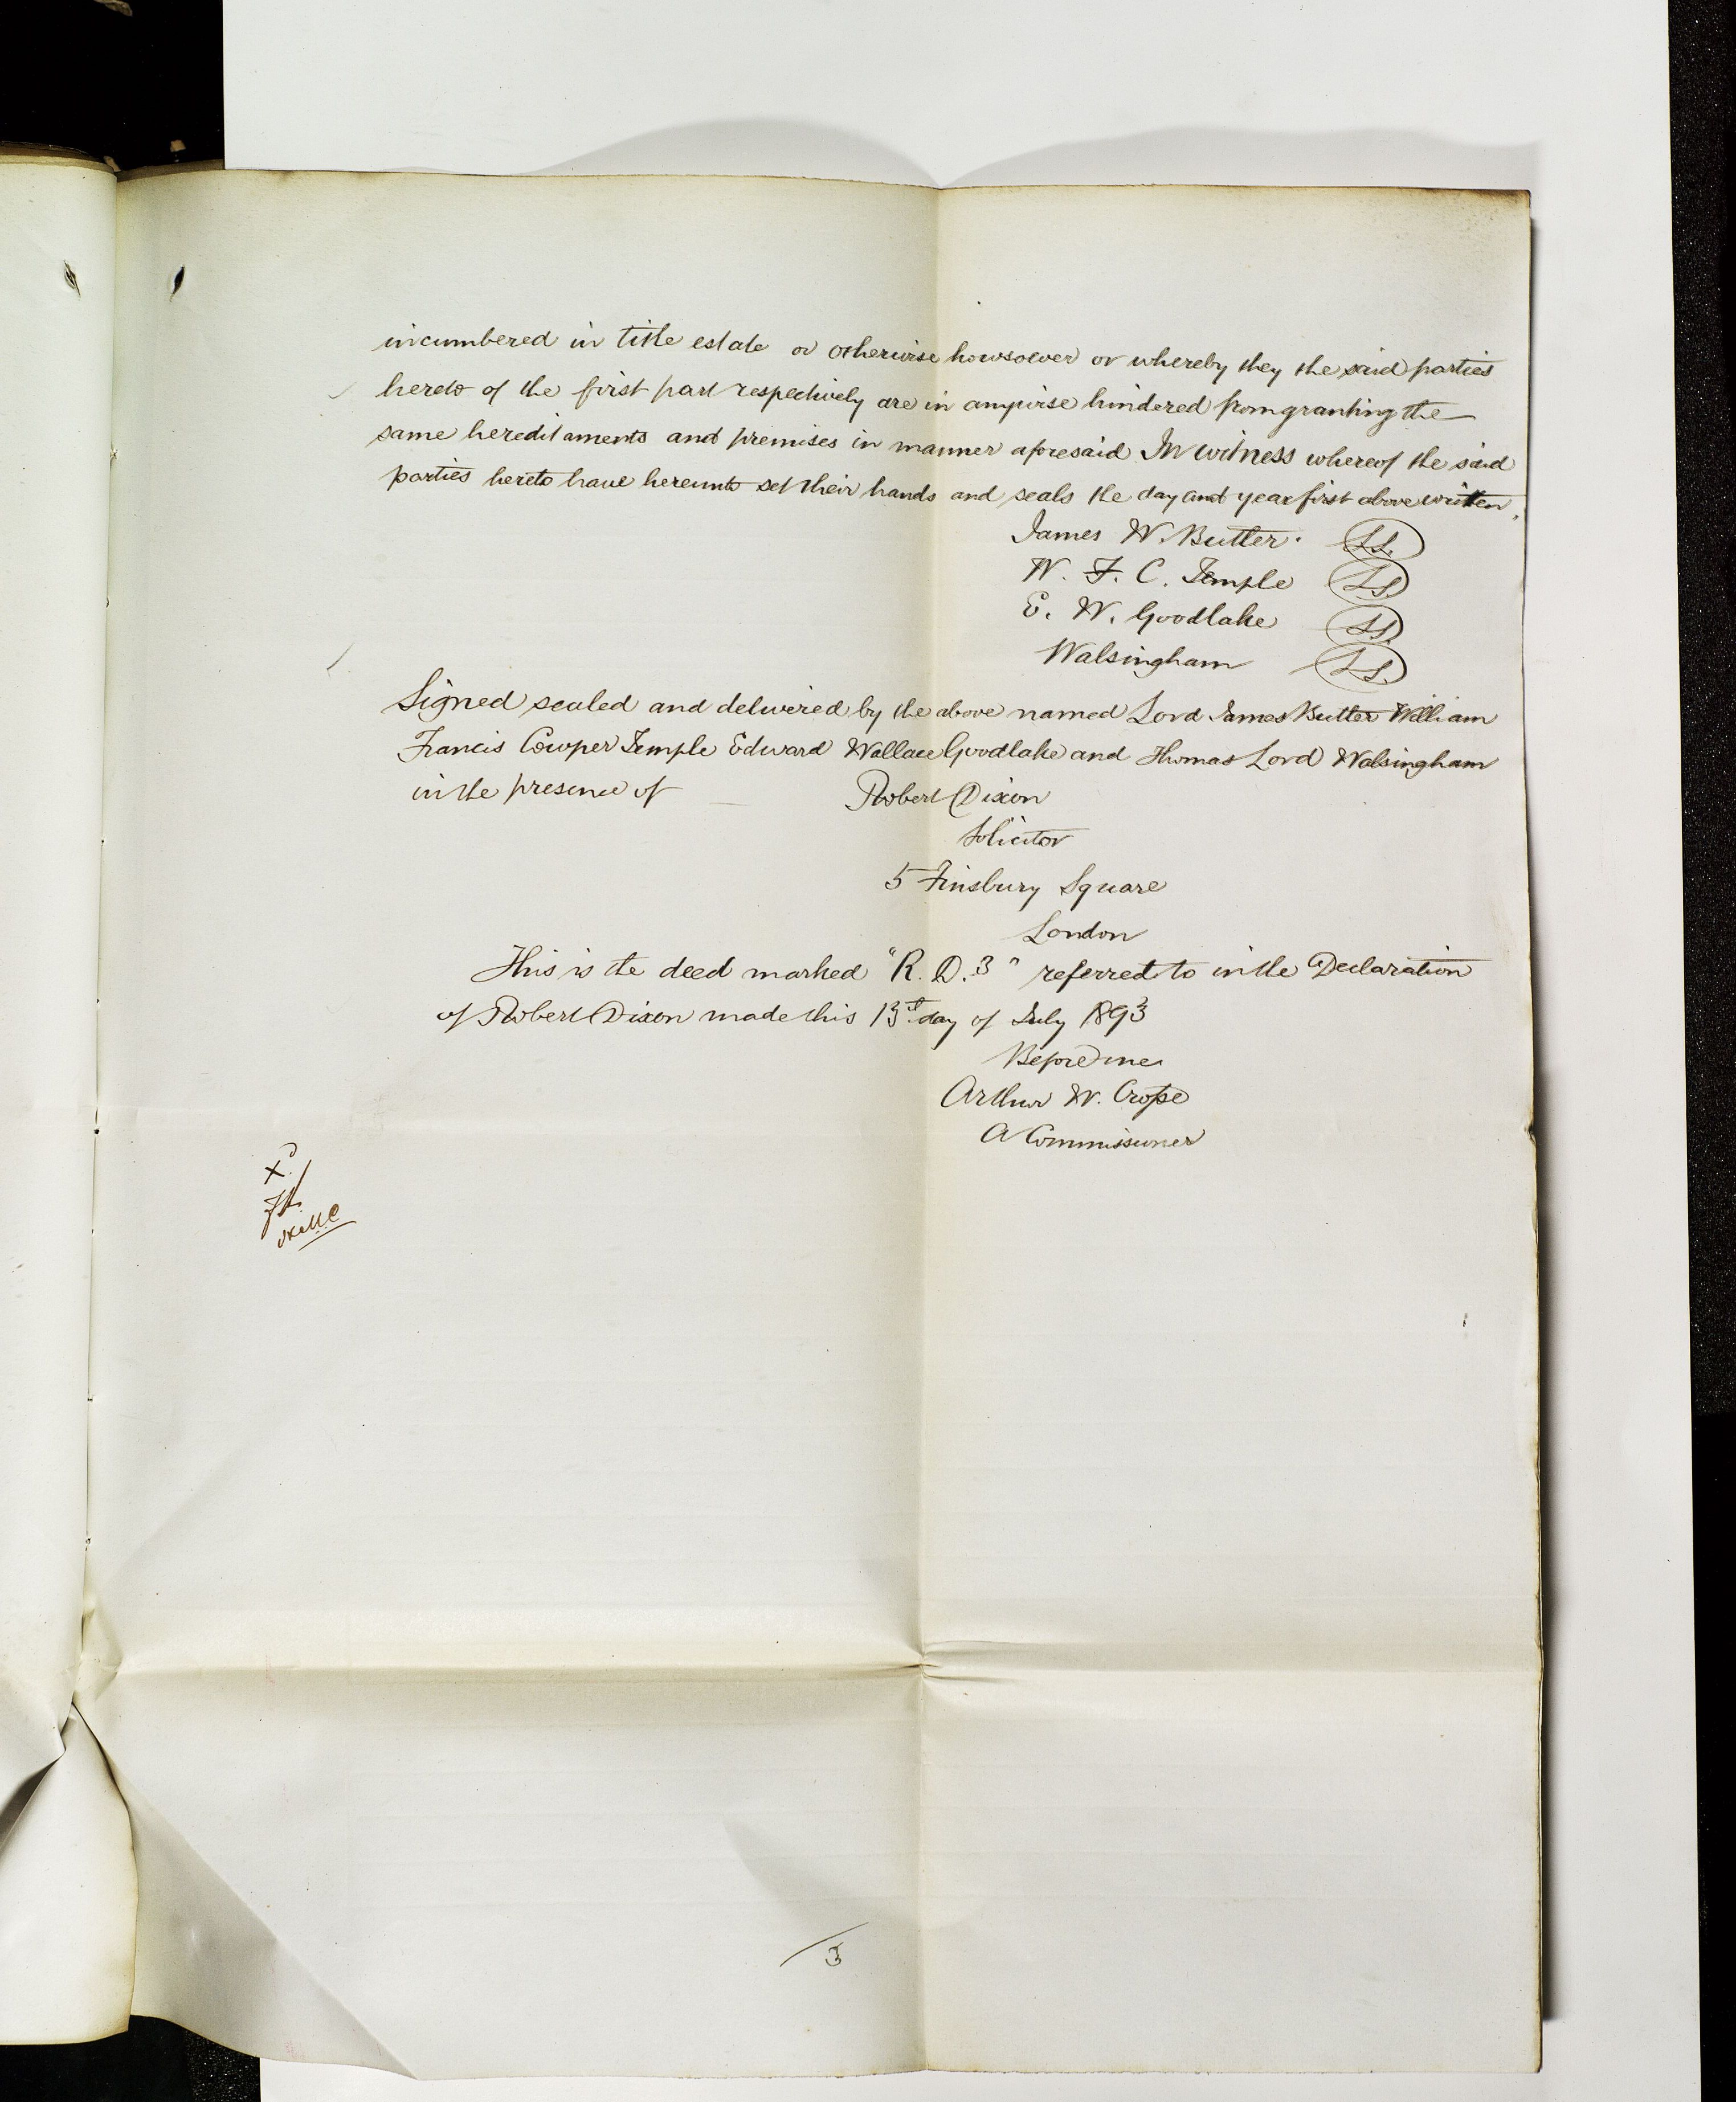 incumbered in title estate or otherwise howsoever or whereby they the said parties
hereto of the first part respectively are in anywise hindered from granting the
same hereditaments and premises in manner aforesaid In witness whereof the said
parties hereto have hereunto set their hands and seals the day and year first above written.
James W. Butler. L.S.
W. F. C. Temple L.S.
E. W. Goodlake L.S.
Walsingham L.S.
Signed sealed and delivered by the above named Lord James Butler William
Francis Cowper Temple Edward Wallace Goodlake and Thomas Lord Walsingham
in the presence of Robert Dixon
Solicitor
5 Finsbury Square
London
This is the deed marked "R. D. 3" referred to in the Declaration
of Robert Dixon made this 13th day of July 1893
Before me
Arthur W.
A Commissioner
X
3